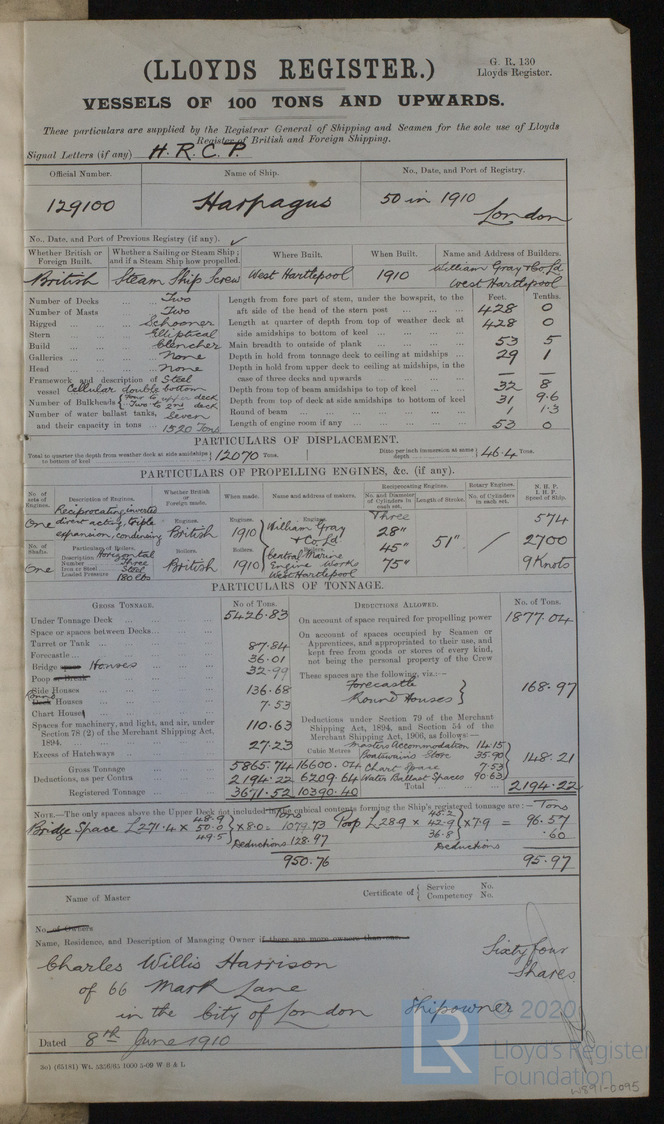 (LLOYDS REGISTER.)
G. R. 130
Lloyds Register.
VESSELS OF 100 TONS AND UPWARDS.
These particulars are supplied by the Registrar General of Shipping and Seamen for the sole use of Lloyds
Register of British and Foreign Shipping.
Signal Letters (if any) H. R. C. P.
Official Number. Name of Ship. No., Date, and Port of Registry.
129100 Harpagus 50 in 1910
London
No., Date, and Port of Previous Registry (if any).
Whether British or Foreign Built. Whether a Sailing or Steam Ship; and if a Steam Ship how propelled. Where Built. When Built. Name and Address of Builders.
British Steam Ship Screw West Hartlepool 1910 William Gray & Co Ld West Hartlepool
Number of Decks ... Two Length from fore part of stem, under the bowsprit, to the Feet. Tenths.
Number of Masts ... Two aft side of the head of the stern post ... 428 0
Rigged ... Schooner Length at quarter of depth from top of weather deck at
Stern ... Elliptical side amidships to bottom of keel ... 428 0
Build ... Clencher Main breadth to outside of plank ... 53 5
Galleries ... None Depth in hold from tonnage deck to ceiling at midships ... 29 1
Head ... None Depth in hold from upper deck to ceiling at midships, in the
Framework and description of Steel case of three decks and upwards ... — —
vessel Cellular double bottom Depth from top of beam amidships to top of keel ... 32 8
Number of Bulkheads { Four to upper deck Two to 2nd deck Depth from top of deck at side amidships to bottom of keel 31 9.6
Number of water ballast tanks, Seven Round of beam ... 1 1.3
and their capacity in tons ... 1520 Tons Length of engine room if any ... 53 0
PARTICULARS OF DISPLACEMENT.
Total to quarter the depth from weather deck at side amidships to bottom of keel } 12070 Tons. Ditto per inch immersion at same depth } 46.4 Tons.
PARTICULARS OF PROPELLING ENGINES, &c. (if any).
No. of sets of Engines. Description of Engines. Whether British or Foreign made. When made. Name and address of makers. Reciprocating Engines. Rotary Engines. N. H. P. I. H. P. Speed of Ship.
No. and Diameter of Cylinders in each set. Length of Stroke. No. of Cylinders in each set.
One Reciprocating inverted direct acting, triple expansion, condensing Engines. British Engines. 1910 Engines. William Gray & Co Ld Three 28" 45" 75" 51" / 574 2700 9 Knots
No. of Shafts. Particulars of Boilers.
One Description Horizontal Number Three Iron or Steel Steel Loaded Pressure 180 lbs Boilers. British Boilers. 1910 Boilers. Central Marine Engine Works West Hartlepool
PARTICULARS OF TONNAGE.
Gross Tonnage. No. of Tons. Deductions Allowed. No. of Tons.
Under Tonnage Deck ... 5426.83 On account of space required for propelling power 1877.04
Space or spaces between Decks... On account of spaces occupied by Seamen or
Turret or Tank ... 87.84 Apprentices, and appropriated to their use, and
Forecastle ... 36.01 kept free from goods or stores of every kind,
Bridge space Houses ... 32.99 not being the personal property of the Crew
Poop or Break These spaces are the following, viz.:—
Side Houses 136.68 Forecastle
Deck Houses 7.53 Round Houses } 168.97
Chart House
Spaces for machinery, and light, and air, under 110.63 Deductions under Section 79 of the Merchant
Section 78 (2) of the Merchant Shipping Act, Shipping Act, 1894, and Section 54 of the
1894. Merchant Shipping Act, 1906, as follows:—
Excess of Hatchways ... 27.23 Cubic Metres Masters Accommodation 14.15
Boatswains Store 35.90
Gross Tonnage 5865.74 16600.04 Chart Space 7.53 148.21
Deductions, as per Contra 2194.22 6209.64 Water Ballast Spaces 90.63
Registered Tonnage 3671.52 10390.40 Total 2194.22
NOTE.—The only spaces above the Upper Deck not included in the cubical contents forming the Ship's registered tonnage are:— Tons
Bridge Space L 271.4 x 48.9 50.0 49.5 } x 8.0 = Tons 1079.73 Poop L 28.9 x 45.2 42.9 36.8 } x 7.9 = 96.57
Deductions 128.97 Deductions .60
950.76 95.97
Name of Master Certificate of { Service No. Competency No.
No. of Owners
Name, Residence, and Description of Managing Owner if there are more owners than one.
Charles Willis Harrison Sixty four
of 66 Mark Lane Shares
in the City of London Shipowner
Dated 8th June 1910
(65181) Wt. 5358/85 1000 5-09 W B & L
LR © 2020 Lloyd's Register Foundation
W891-0095